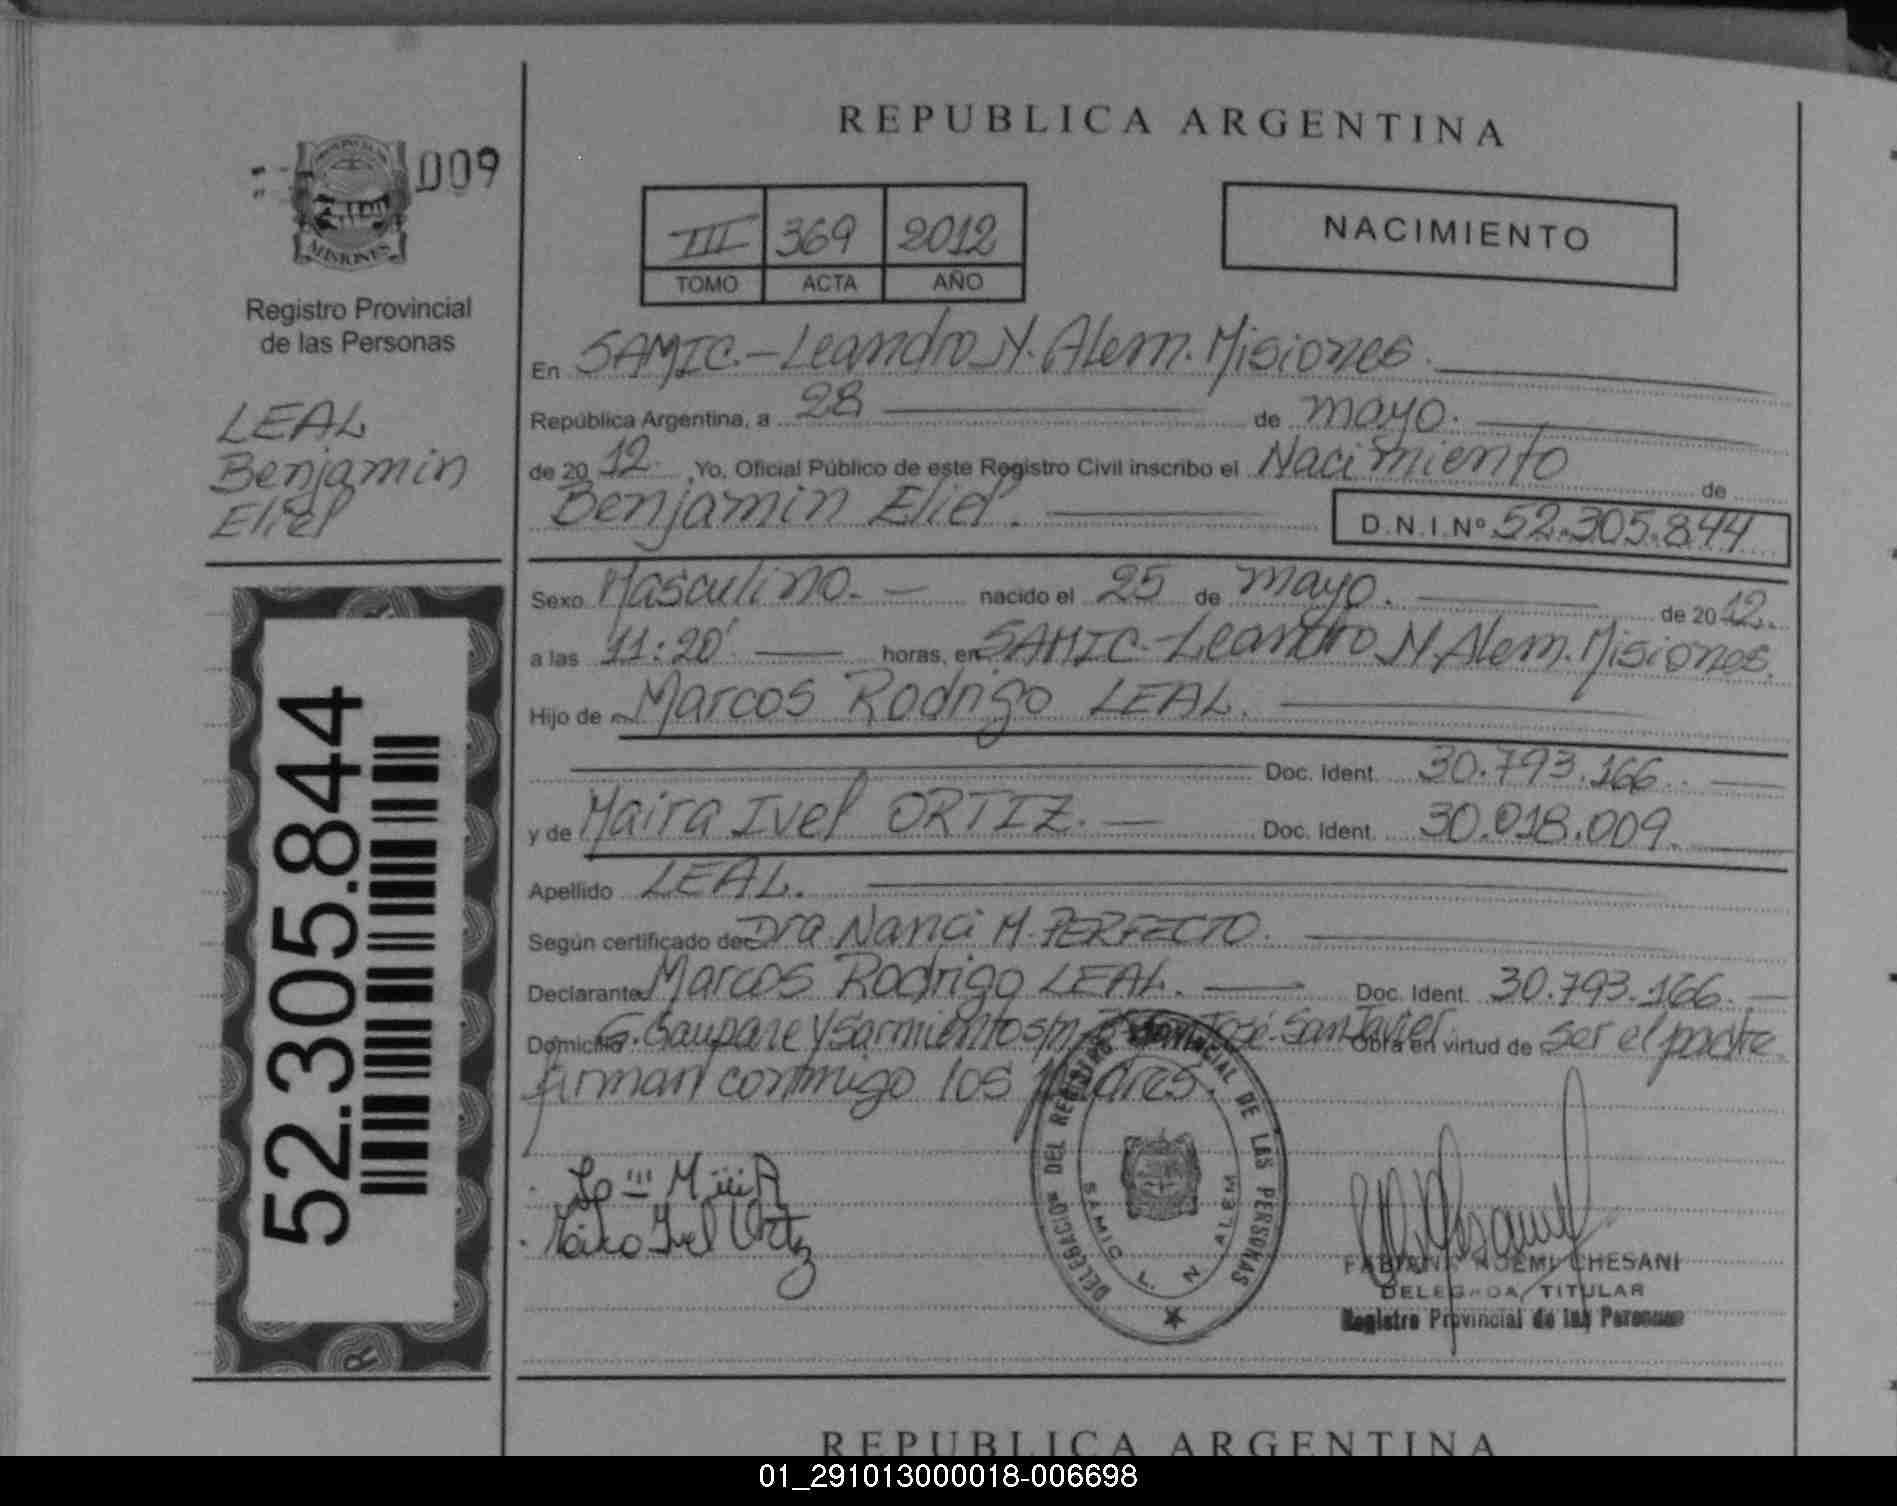 REPUBLICA ARGENTINA
009
MISIONES
Registro Provincial
de las Personas
LEAL
Benjamin
Eliel
52.305.844
III 369 2012
TOMO ACTA AÑO
NACIMIENTO
En SAMIC.-Leandro N. Alem. Misiones.
República Argentina, a 28 de mayo.
de 2012. Yo, Oficial Público de este Registro Civil inscribo el Nacimiento de
Benjamin Eliel. D.N.I.Nº 52.305.844
Sexo Masculino.- nacido el 25 de mayo. de 2012.
a las 11:20' horas, en SAMIC-Leandro N. Alem. Misiones.
Hijo de Marcos Rodrigo LEAL.
Doc. Ident. 30.793.166.
y de Maira Ivel ORTIZ.- Doc. Ident. 30.018.009.
Apellido LEAL.
Según certificado de Dra Nanci M. PERFECTO.
Declarante Marcos Rodrigo LEAL. Doc. Ident. 30.793.166.-
Domicilio G. y Sarmiento s/n José-San Javier. Obra en virtud de ser el padre
firman conmigo los padres.
Ivel Ortiz
DELEGACION DEL REGISTRO PROVINCIAL DE LAS PERSONAS
SAMIC L. N. ALEM
FABIANA NOEMI CHESANI
DELEGADA TITULAR
Registro Provincial de las Personas
REPUBLICA ARGENTINA
01_291013000018-006698